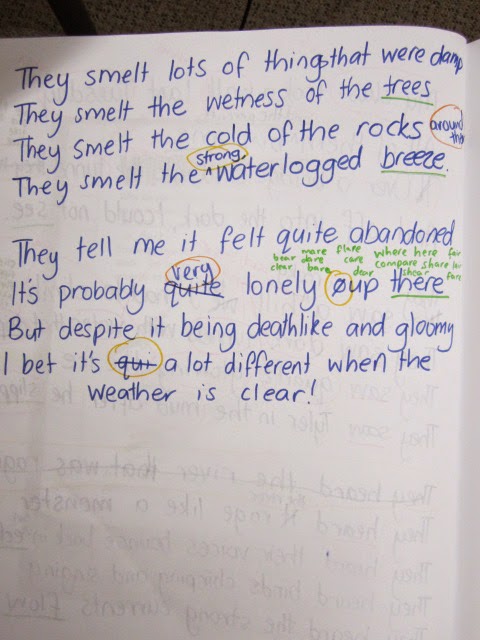 They smelt lots of things that were damp
They smelt the wetness of the trees
They smelt the cold of the rocks around
strong
They smelt the ^ waterlogged breeze.
They tell me it felt quite abandoned
mare flare where here far
bear dare care compare share
clear bare dear shear fare
very
It's probably quite lonely up there
But despite it being deathlike and gloomy
I bet it's qui a lot different when the
weather is clear!